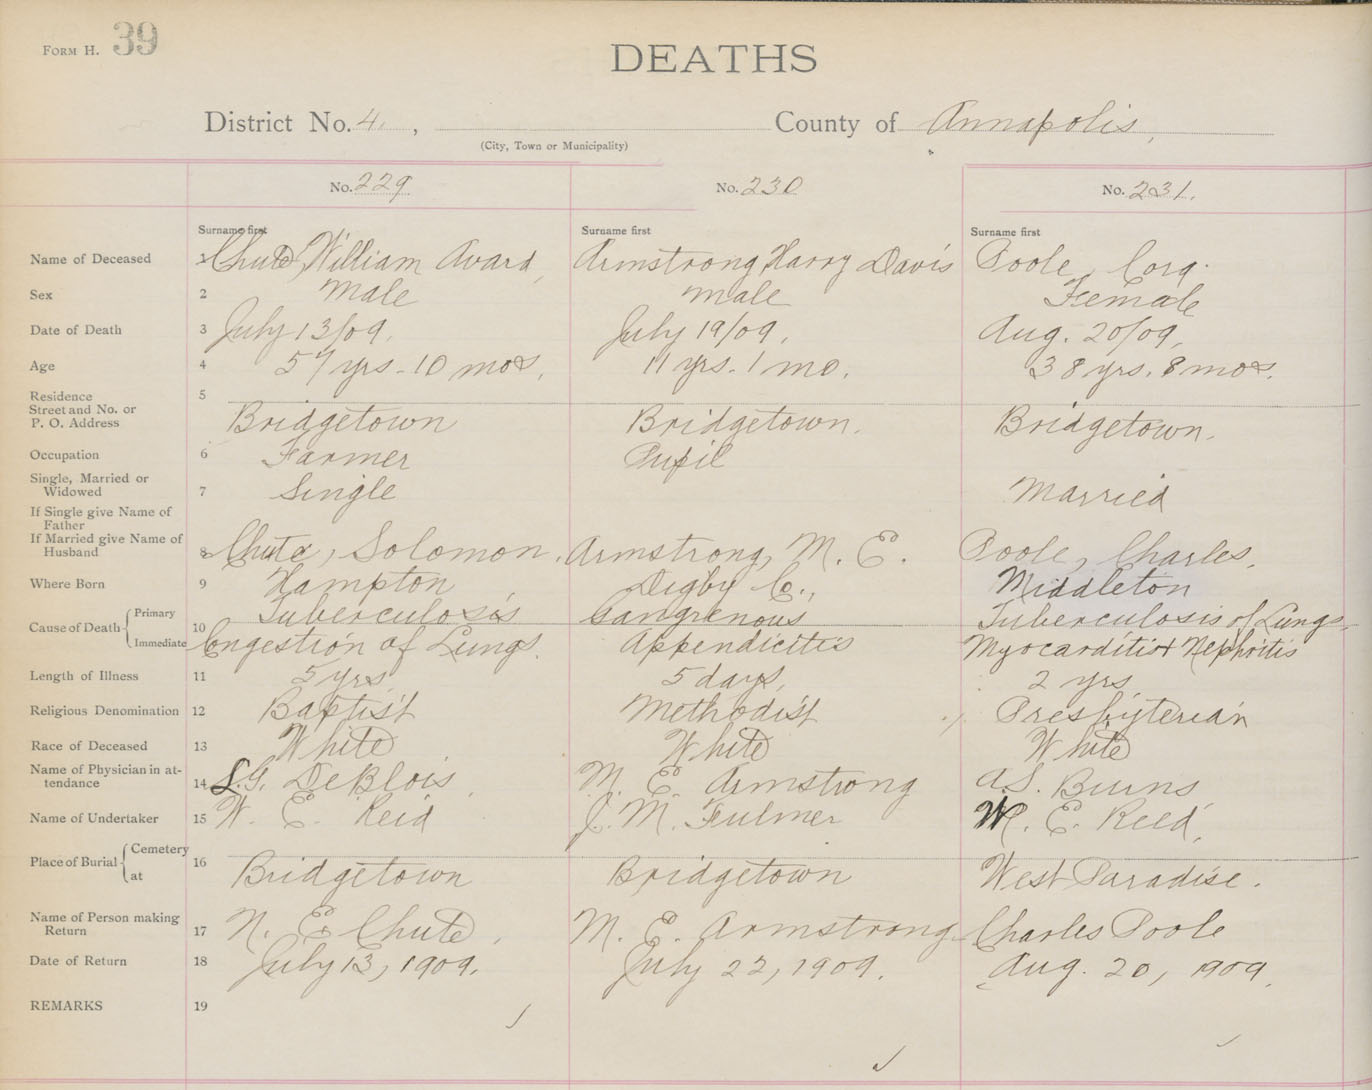 FORM H. 39
DEATHS
District No. 4. , County of Annapolis,
(City, Town or Municipality)
No. 229 No. 230 No. 231.
Surname first Surname first Surname first
Name of Deceased 1 Chute, William Avard, Armstrong, Harry Davis Poole, Cora.
Sex 2 Male Male Feemale
Date of Death 3 July 13/09. July 19/09. Aug. 20/09,
Age 4 57 yrs - 10 mos. 11 yrs. 1 mo. 38 yrs. 8 mos.
Residence 5
Street and No. or
P. O. Address Bridgetown Bridgetown. Bridgetown.
Occupation 6 Farmer Pupil
Single, Married or
Widowed 7 Single Married
If Single give Name of
Father
If Married give Name of
Husband 8 Chute, Solomon. Armstrong, M. E. Poole, Charles.
Where Born 9 Hampton Digby Co., Middleton
Cause of Death Primary 10 Tuberculosis Gangrenous Tuberculosis of Lungs.
Immediate Congestion of Lungs. Appendicitis Myocarditis + Nephritis
Length of Illness 11 5 yrs 5 days. 2 yrs
Religious Denomination 12 Baptist Methodist Presbyterian
Race of Deceased 13 White White White
Name of Physician in at-
tendance 14 L.G. DeBlois, M. E. Armstrong A.S. Burns
Name of Undertaker 15 W. E. Reid J. M. Fulmer W. E. Reed,
Place of Burial Cemetery 16
at Bridgetown Bridgetown West Paradise.
Name of Person making
Return 17 N. E. Chute, M. E. Armstrong Charles Poole
Date of Return 18 July 13, 1909. July 22, 1909. Aug. 20, 1909.
REMARKS 19